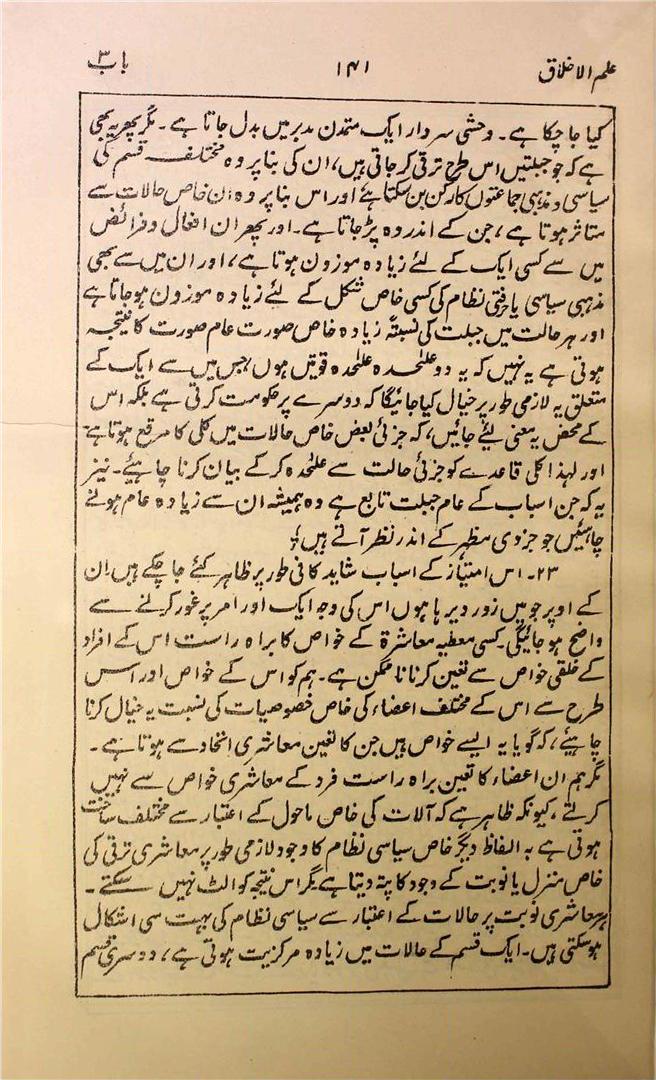 علم الاخلاق ۱۴۱ باب ۳
کیا جا چکا ہے۔ وحشی سردار ایک متمدن مدبر میں بدل جاتا ہے۔ مگر پھر یہ بھی
ہے کہ جو جبلتیں اس طرح ترقی کر جاتی ہیں، ان کی بنا پر وہ مختلف قسم کی
سیاسی و مذہبی جماعتوں کا رکن بن سکتا ہے اور اس بنا پر وہ ان خاص حالات سے
متاثر ہوتا ہے، جن کے اندر وہ پڑ جاتا ہے۔ اور پھر ان افعال و فرائض
میں سے کسی ایک کے لئے زیادہ موزون ہوتا ہے، اور ان میں سے بھی
مذہبی سیاسی یا رفتی نظام کی کسی خاص شکل کے لئے زیادہ موزون ہو جاتا ہے
اور ہر حالت میں جبلت کی نسبتہً زیادہ خاص صورت عام صورت کا نتیجہ
ہوتی ہے یہ نہیں کہ یہ دو علٰحدہ علٰحدہ قوتیں ہوں جس میں سے ایک کے
متعلق یہ لازمی طور پر خیال کیا جائیگا کہ دوسرے پر حکومت کرتی ہے بلکہ اس
کے محض یہ معنی لیئے جائیں، کہ جزئی بعض خاص حالات میں کلی کا مرقع ہوتا ہے
اور لہذا کلی قاعدے کو جزئی حالت سے علٰحدہ کرکے بیان کرنا چاہیئے۔ نیز
یہ کہ جن اسباب کے عام جبلت تابع ہے وہ ہمیشہ ان سے زیادہ عام ہونے
چاہئیں جو جزوی مظہر کے اندر نظر آتے ہیں؛
۲۳۔ اس امتیاز کے اسباب شاید کافی طور پر ظاہر کئے جا چکے ہیں ان
کے اوپر جو میں زور دیر ہا ہوں اس کی وجہ ایک اور امر پر غور کرنے سے
واضح ہو جائیگی۔ کسی معطیہ معاشرۃ کے خواص کا براہ راست اس کے افراد
کے خلقی خواص سے تعین کرنا ناممکن ہے۔ ہم کو اس کے خواص اور اسی
طرح سے اس کے مختلف اعضاء کی خاص خصوصیات کی نسبت یہ خیال کرنا
چاہیئے، کہ گویا یہ ایسے خواص ہیں جن کا تعین معاشری اتحاد سے ہوتا ہے۔
مگر ہم ان اعضاء کا تعین براہ راست فرد کے معاشری خواص سے نہیں
کرتے، کیونکہ ظاہر ہے کہ آلات کی خاص ماحول کے اعتبار سے مختلف ساخت
ہوتی ہے بہ الفاظ دیگر خاص سیاسی نظام کا وجود لازمی طور پر معاشری ترقی کی
خاص منزل یا نوبت کے وجود کا پتہ دیتا ہے مگر اس نتیجہ کو الٹ نہیں سکتے۔
ہر معاشری نوبت پر حالات کے اعتبار سے سیاسی نظام کی بہت سی اشکال
ہو سکتی ہیں۔ ایک قسم کے حالات میں زیادہ مرکزیت ہوتی ہے، دوسری قسم